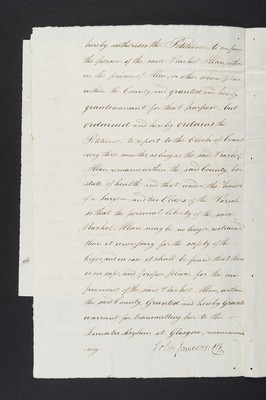 hereby authorises the Petitioner to confine
the person of the said Rachel Allan, either
in the prison of or other secure place
within the County, and granted and hereby
grants warrant for that purpose, but
ordained and hereby ordains the
Petitioner to report to the Clerk of Court
every three months as long as the said Rachel
Allan remains within the said County, her
state of health and that under the hands
of a Surgeon and two Elders of the Parish
so that the personal liberty of the said
Rachel Allan may be no longer restrained
than is necessary for the safety of the
lieges, and in case it shall be found that there
is no safe and proper place for the con
finement of the said Rachel Allan within
the said County Granted and hereby Grants
warrant for transmitting her to the
Lunatic Asylum at Glasgow, recommend
ing John Jameson Clk